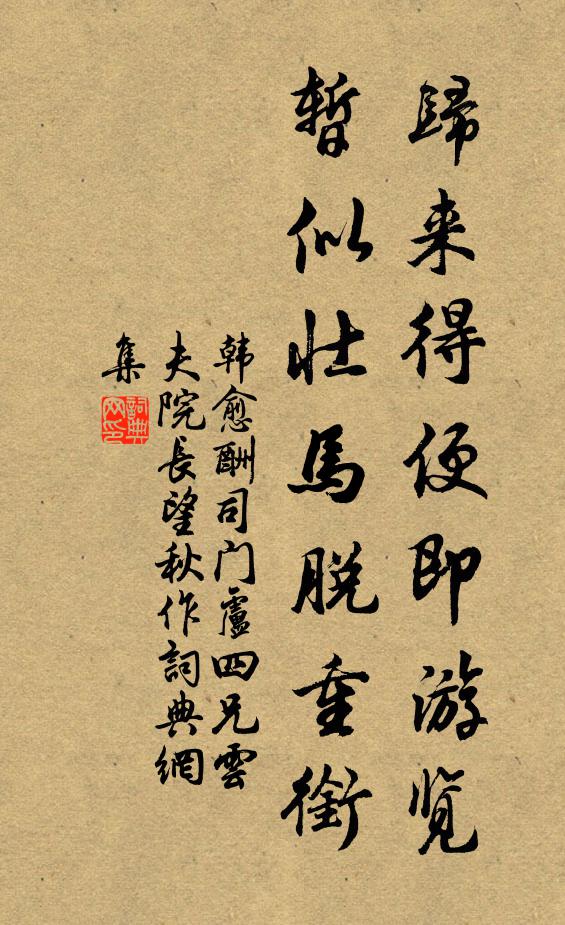 歸来得便即游览
暂似壮馬脱重銜
韩愈酬司门盧四兄雲
夫院長望秋作詞典網
集
詞典
网印